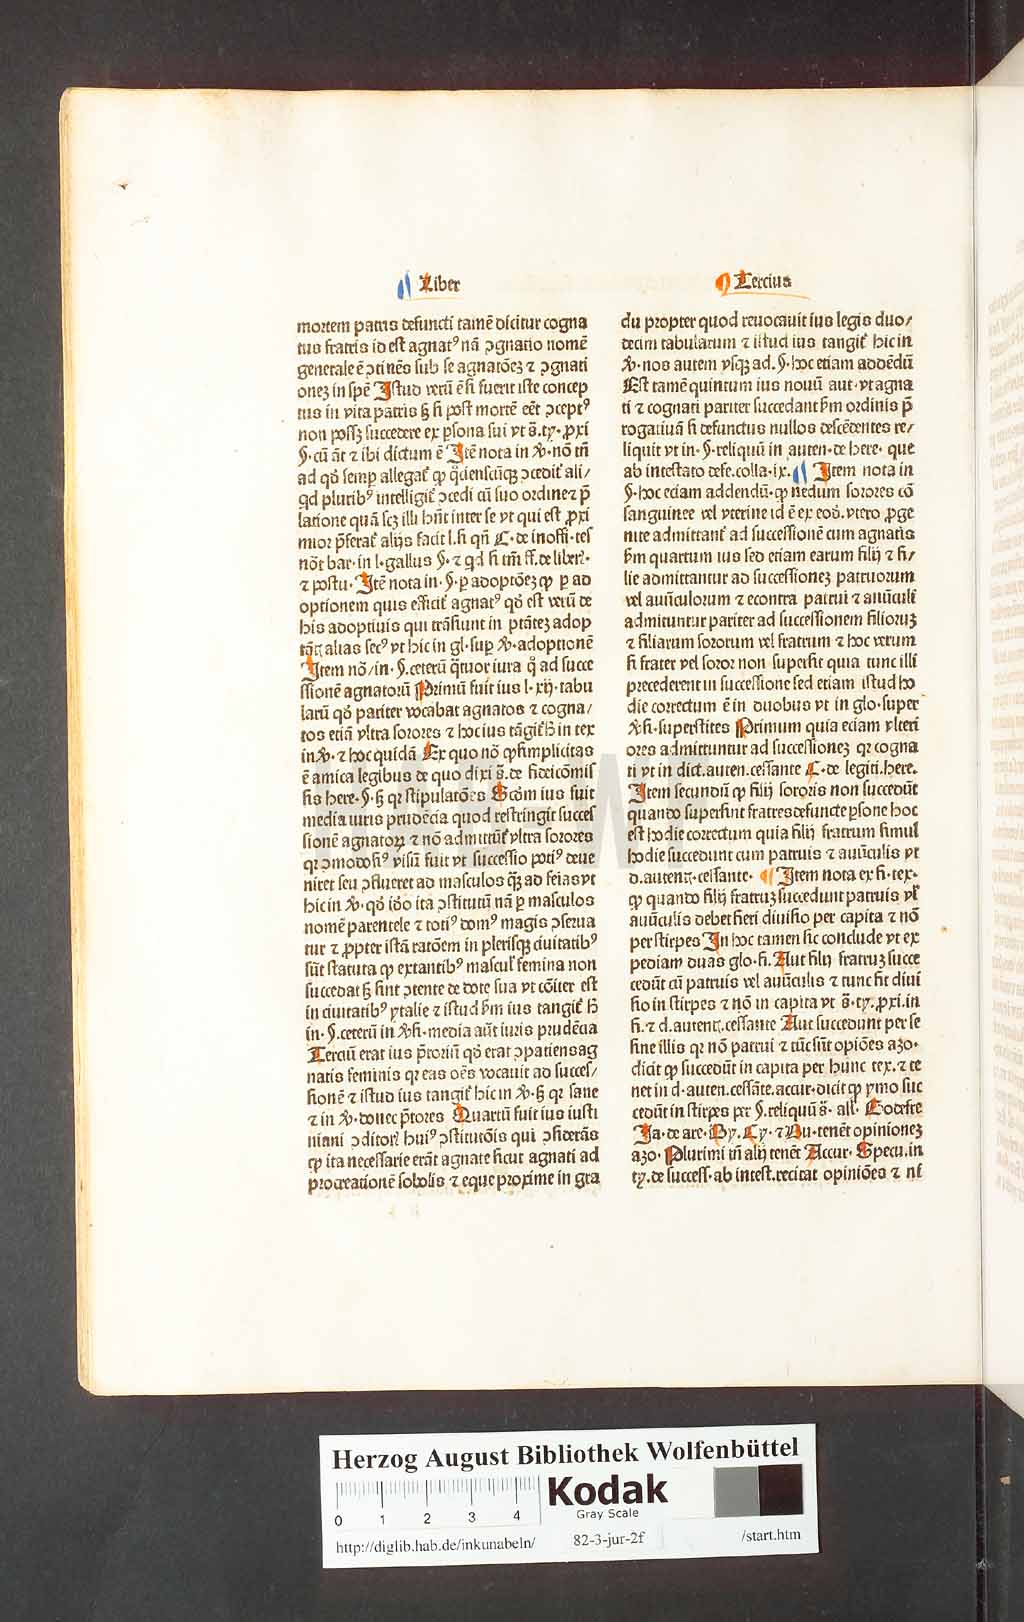 Liber
Tercius
mortem patris defuncti tamē dicitur cogna
tus fratris id est agnatꝰ nā ꝯgnatio nomē
generale ē ꝯtinēs sub se agnatōeꝫ ⁊ ꝯgnati
oneꝫ in spē Istud verū ē si fuerit iste concep
tus in vita patris ꝫ si post mortē eēt ꝯceptꝰ
non possꝫ succedere ex ꝑsona sui vt s̄.ty.ꝓxi
§.cū āt ⁊ ibi dictum ē Itē nota in ℣.nō tm̄
ad qđ semꝑ allegat̉ ꝙ q̄cienscūqꝫ ꝯcedit̉ ali/
qd pluribꝰ intelligit̉ ꝯcedi cū suo ordine ⁊ p̄
latione quā scꝫ illi hn̄t inter se vt qui est ꝓxi
mior p̄ferat̉ alijs facit l.si qn̄ C.de inoffi.tes
nōt bar.in l.gallus §.⁊ qd si tm̄ ff.de liberꝭ.
⁊ postu.Itē nota in.§.ꝑ adoptōeꝫ ꝙ ꝑ ad
optionem quis efficit̉ agnatꝰ qđ est verū de
his adoptiuis qui trāsiunt in ptāteꝫ adop
tātꝭ alias secꝰ vt hic in gl.suꝑ ℣.adoptionē
Item nō/in.§.ceterū q̄tuor iura q̄ ad succe
ssionē agnatorū Primū fuit ius l.xij.tabu
larū qđ pariter vocabat agnatos ⁊ cogna/
tos etiā vltra sorores ⁊ hoc ius tāgit̉ h̄ in tex
in ℣.⁊ hoc quidā Ex quo nō ꝙ simplicitas
ē amica legibus de quo dixi s̄.de fideicōmis
sis here.§.ꝫ qꝛ stipulatōes Scdm ius fuit
media iuris prudēcia quod restringit succes
sionē agnatoꝝ ⁊ nō admittūt̉ vltra sorores
qꝛ ꝯmodosiꝰ visū fuit vt successio potiꝰ deue
niret seu ꝯflueret ad masculos q̄ꝫ ad feias vt
hic in ℣.qđ iđo ita ꝯstitutū nā ꝑ masculos
nomē parentele ⁊ totiꝰ domꝰ magis ꝯserua
tur ⁊ ꝓpter istā ratōem in plerisqꝫ ciuitatibꝰ
sūt statuta ꝙ extantibꝰ mascul̉ femina non
succedat ꝫ sint ꝯtente de dote sua vt cōiter est
in ciuitatibꝰ ytalie ⁊ istud ẜm ius tangit̉ h̄
in.§.ceterū in ℣.si.media aūt iuris prudēcia
Terciū erat ius p̄toriū qđ erat ꝯpatiens ag
natis feminis qꝛ eas oēs vocauit ad succes/
sionē ⁊ istud ius tangit̉ hic in ℣.ꝫ qꝛ sane
⁊ in ℣.donec p̄tores Quartū fuit ius iusti
niani ꝯditorꝭ huiꝰ ꝯstitutōis qui ꝯsiderās
ꝙ ita necessarie erāt agnate sicut agnati ad
procreationē sobolis ⁊ eque proxime in gra
du propter quod reuocauit ius legis duo/
decim tabularum ⁊ istud ius tangit̉ hic in
℣.nos autem vsqꝫ ad.§.hoc etiam addēdū
Est tamē quintum ius nouū aut.vt agna
ti ⁊ cognati pariter succedant ẜm ordinis p̄
rogatiuā si defunctus nullos descēdentes re/
liquit vt in.§.reliquū in auten.de here.que
ab intestato defe.colla.ix. Item nota in
§.hoc eciam addendū.ꝙ nedum sorores cō
sanguinee vel vterine id ē ex eođ.vtero ꝓge
nite admittant̉ ad successionē cum agnatis
ẜm quartum ius sed etiam earum filij ⁊ fi/
lie admittantur ad successioneꝫ patruorum
vel auūculorum ⁊ econtra patrui ⁊ auūculi
admittuntur pariter ad successionem filioruꝫ
⁊ filiarum sororum vel fratrum ⁊ hoc verum
si frater vel soror non supersit quia tunc illi
precederent in successione sed etiam istud ho
die correctum ē in duobus vt in glo.super
℣.si.superstites Primum quia eciam vlteri
ores admittuntur ad successioneꝫ qꝛ cogna
ti vt in dict.auten.cessante C.de legiti.here.
Item secundū ꝙ filij sororis non succedūt
quando supersunt fratres defuncte ꝑsone hoc
est hodie correctum quia filij fratrum simul
hodie succedunt cum patruis ⁊ auūculis vt
d.autentꝭ.cessante. Item nota ex si.tex.
ꝙ quando filij fratruꝫ succedunt patruis vl̉
auūculis debet fieri diuisio per capita ⁊ nō
per stirpes In hoc tamen sic conclude vt ex
pediam duas glo.si.Aut filij fratruꝫ succe
cedūt cū patruis vel auūculis ⁊ tunc fit diui
sio in stirpes ⁊ nō in capita vt s̄.ty.ꝓxi.in
fi.⁊ d.autentꝭ.cessante Aut succedunt per se
sine illis qꝛ nō patrui ⁊ tūc sūt opiōes azo.
dicit ꝙ succedūt in capita per hunc tex.⁊ te
net in d.auten.cessāte.accur.dicit ꝙ ymo suc
cedūt in stirpes per §.reliquū s̄.all̉.Godefre
Ja.de are.By.Cy.⁊ Bu.tenēt opinioneꝫ
azo.Plurimi tn̄ alij tenēt Accur.Specu.in
ty.de success.ab intest.recitat opiniōes ⁊ nl̉
Herzog August Bibliothek Wolfenbüttel
0 1 2 3 4
Kodak
Gray Scale
http://diglib.hab.de/inkunabeln/ 82-3-jur-2f /start.htm